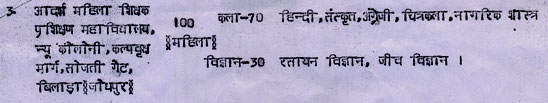 3- आदर्श महिला शिक्षक 100 कला-70 हिन्दी,संस्कृत,अंग्रेजी,चित्रकला,नागरिक शास्त्र
प्रशिक्षण महाविद्यालय, ≬महिला≬
न्यू कॉलोनी,कल्पवृक्ष
मार्ग,सोजती गेट, विज्ञान-30 रसायन विज्ञान, जीव विज्ञान ।
बिलाड़ा≬जोधपुर≬